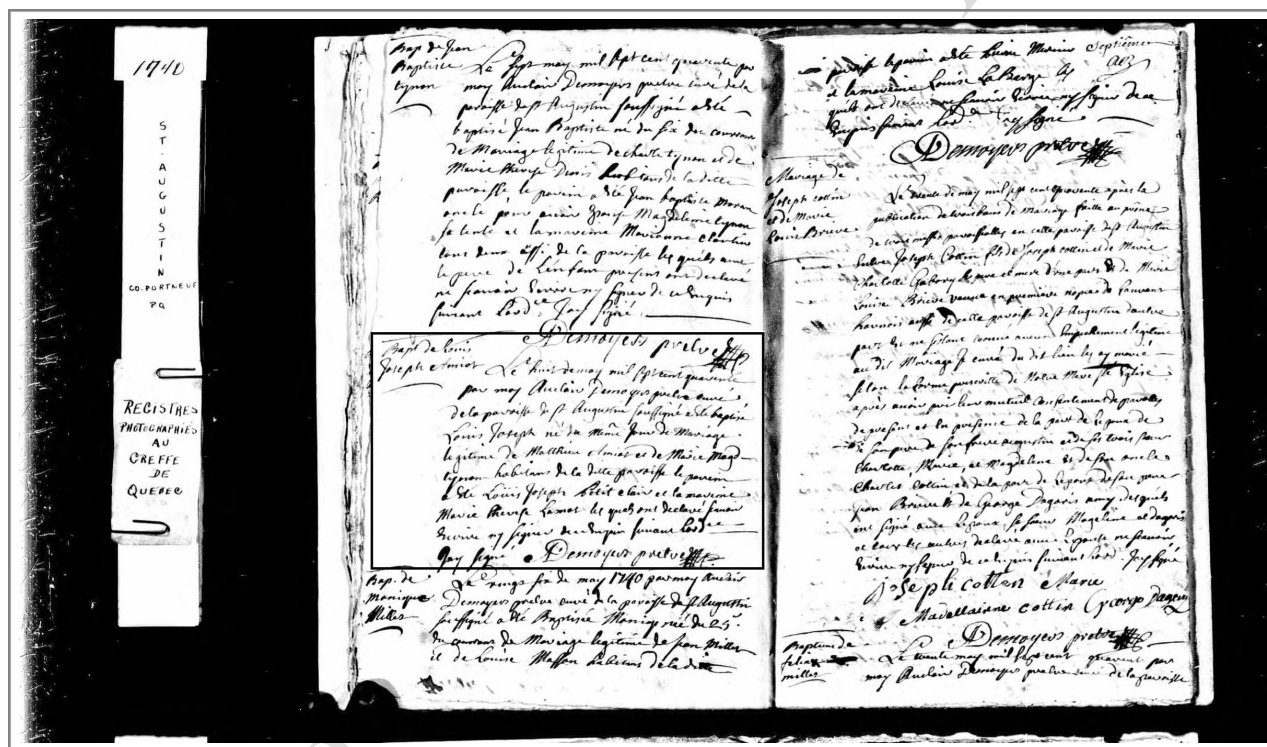 1740
ST. AUGUSTIN
CO. PORTNEUF
PQ
REGISTRES
PHOTOGRAPHIÉS
AU
GREFFE
DE
QUEBEC
Bap. de Jean
Baptiste
tynon
Le sept may mil sept cent quarente par
moy Auclair Desnoyers prestre curé de la
paroisse de st Augustin soussigné a été
baptisé Jean Baptiste né du six du courrant
de Mariage legitime de charle tynon et de
Marie therese habitans de la ditte
paroisse, le parein a été Jean baptiste
Magdeleine tynon
sa tente et la mareine Marianne
tous deux aussi de la paroisse les quels avec
le pere de l'enfant presens ont declaré
ne savoir Ecrire ny signer de ce Enquis
suivant Lord.ce Jay signé
Desnoyers prestre
Bapt de Louis
Joseph Amiot
Le huit de may mil sept cent quarente
par moy Auclair Desnoyers prestre curé
de la paroisse de st Augustin soussigné a été baptisé
Louis Joseph né du même Jour de Mariage
legitime de Matthieu Amiot et de Marie Magd
tynon habitans de la ditte paroisse le parein
a été Louis Joseph petit clair et la mareine
Marie therese les quels ont declaré savoir
Ecrire ny signer de ce Enquis suivant Lord.ce
Jay signé Desnoyers prestre
Bap. de
Monique
Miller
Le vingt six de may 1740 par moy Auclair
Desnoyers prestre curé de la paroisse de st Augustin
soussigné a été Baptisée Monique née du 25
du courant de Mariage legitime de Jean Miller
et de Louise Masson habitans de la ditte
Septième
paroisse le parein a été
et la mareine Louise La Berge les
quels ont declaré ne scavoir Ecrire ny signer de ce
Enquis suivant Lord.ce Jay signé
Desnoyers prestre
Mariage de
Joseph cottin
et de Marie
Louise Briere
Le trente de may mil sept cent quarente après la
publication de trois bans de mariage faitte au prône
de trois messes paroissialles en cette paroisse de st Augustin
Entre Joseph Cottin fils de Joseph cottin et de Marie
charlotte Gabory les pere et mere d'une part Et de Marie
Louise Briere veuve en premiere nopces de Laurant
aussi de cette paroisse de st Augustin d'autre
part Et ne s'etant connue aucun Empeschement legitime
au dit Mariage Je curé du dit lieu les ay marié
selon la forme prescritte de Notre Mere ste Eglise
après avoir pris leur mutuel Consentement de parolles
de present et En presence de la part de L'epoux de
son pere de son frere augustin et de ses trois sœurs
Charlotte, Marie, et Magdelene Et de son oncle
Charles Cottin et de la part de L'epouse de son pere
Jean Briere Et de George Dagoris amy desquels
ont signé avec L'epoux, sa sœur Magdelene et dagoris
et tous les autres declaré avec L'epouse ne savoir
Ecrire ny signer de ce Enquis suivant Lord.ce Jay signé
Joseph cotten Marie
Madellainne cottin
Desnoyers prestre
Baptesme de
miller
Le trente may mil sept cent quarente par
moy Auclair Desnoyers prestre curé de la paroisse